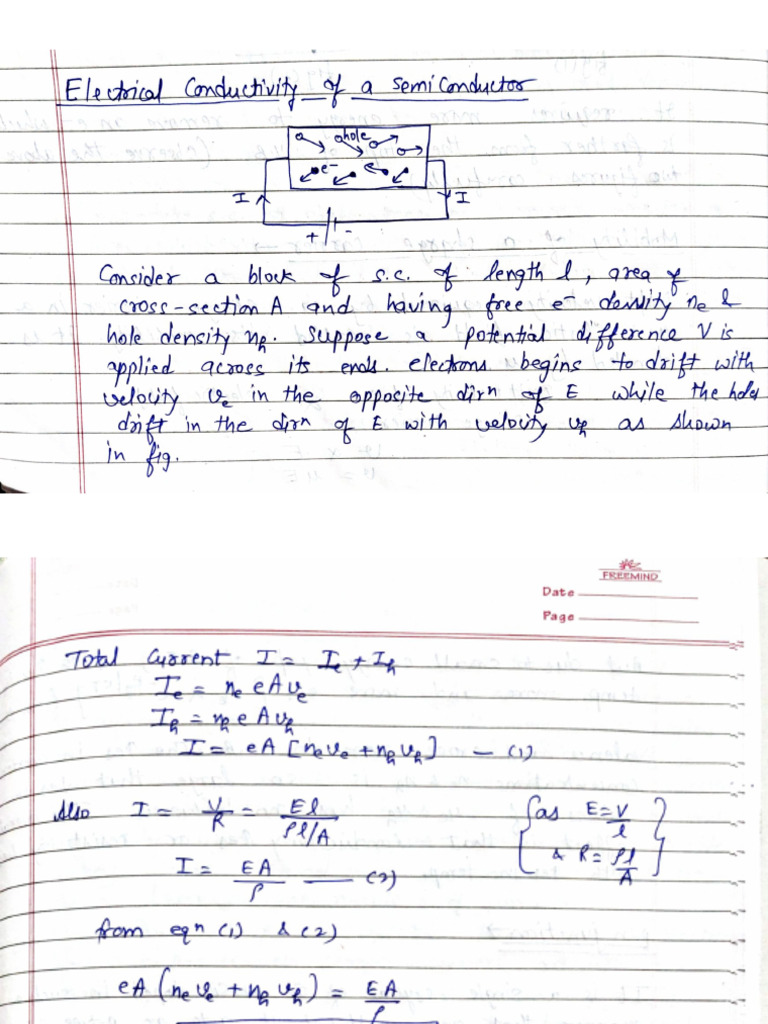 Electrical Conductivity of a semiconductor
hole
e⁻ e⁻
I I
+ -
Consider a block of s.c. of length l, area of
cross-section A and having free e⁻ density nₑ &
hole density nₕ. Suppose a potential difference V is
applied across its ends. electrons begins to drift with
velocity vₑ in the opposite dirⁿ of E while the holes
drift in the dirⁿ of E with velocity vₕ as shown
in fig.
FREEMIND
Date
Page
Total Current I = Iₑ + Iₕ
Iₑ = nₑ e A vₑ
Iₕ = nₕ e A vₕ
I = eA [nₑvₑ + nₕvₕ] — (1)
Also I = V/R = El/(ρl/A) {as E = V/l
& R = ρl/A}
I = EA/ρ — (2)
from eqⁿ (1) & (2)
eA (nₑvₑ + nₕvₕ) = EA/ρ